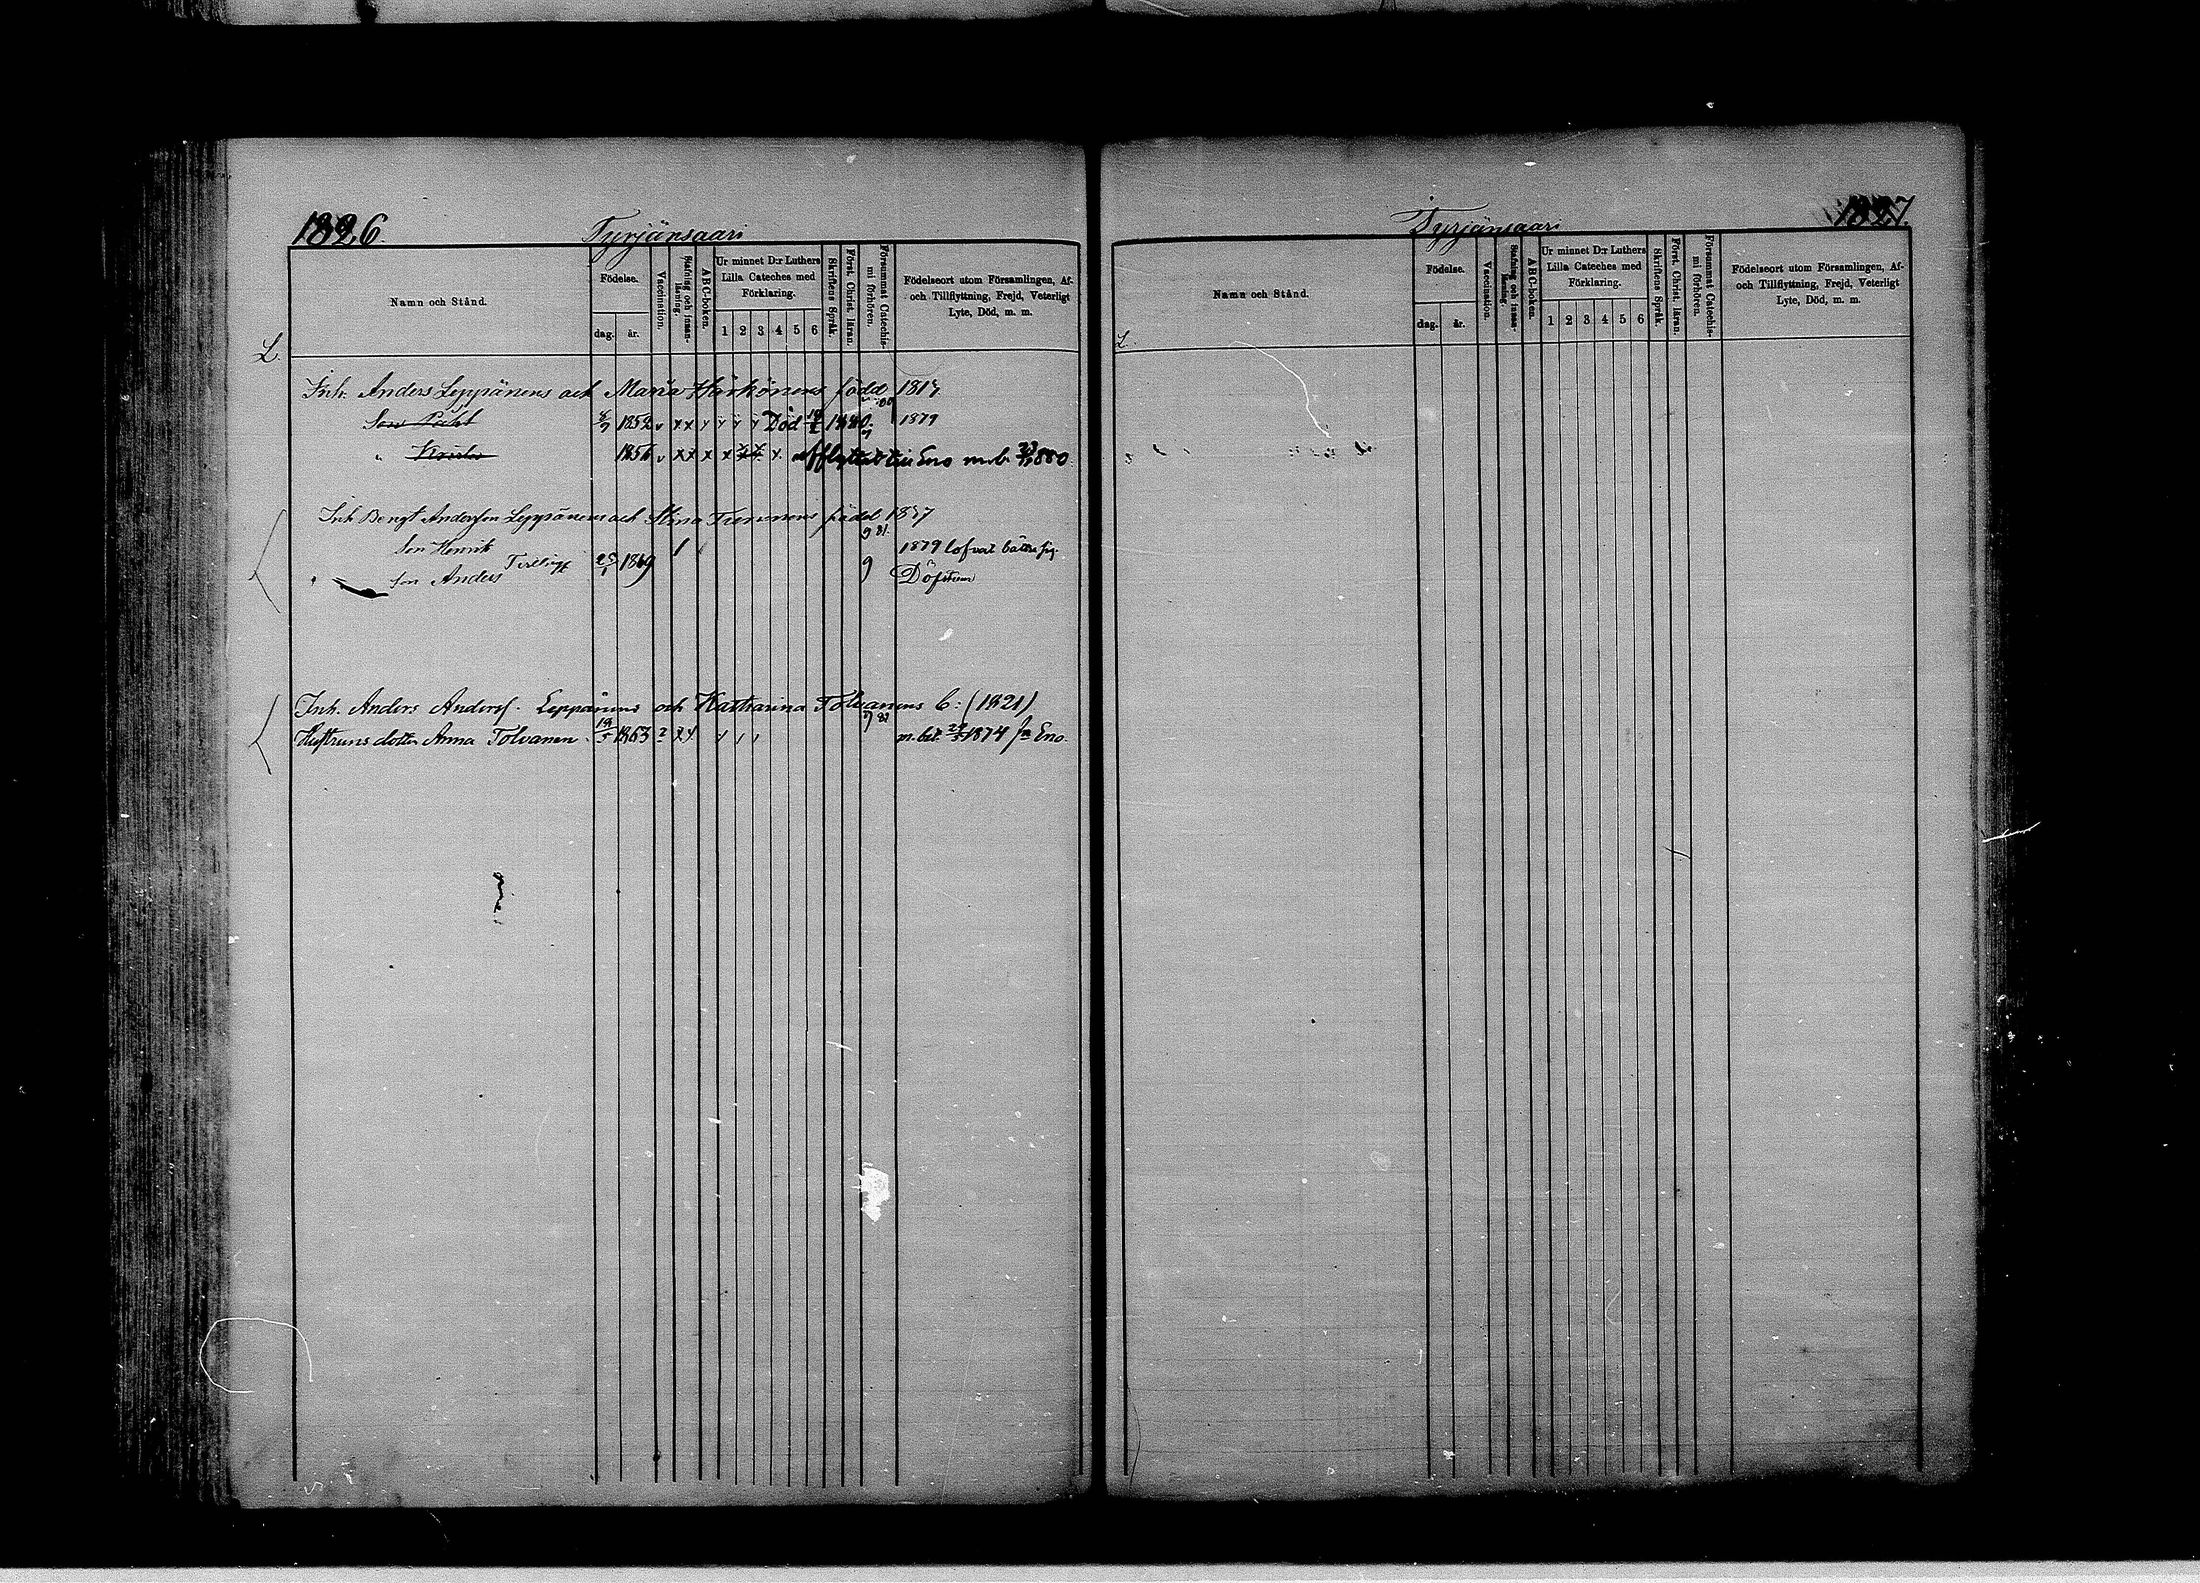 1826.
Tyrjänsaari
Namn och Stånd.
Födelse.
dag.
år.
Vaccination.
Stafning och innan-läsning.
ABC-boken.
Ur minnet D:r Luthers
Lilla Cateches med
Förklaring.
1 2 3 4 5 6
Skriftens Språk.
Först. Christ. läran.
Försummat Catechis-
mi förhören.
Födelseort utom Församlingen, Af-
och Tillflyttning, Frejd, Veterligt
Lyte, Död, m. m.
L.
Inh. Anders Leppänens och Maria Härkönens född 1817
Son 1852 Död 1880. 1879
" 1856 afflyttat till Eno m.b. 1880.
Inh Bengt Anderson Leppänens och Stina Turunens född 1837
Son Henrik 1879 lofvat bättra sig.
Son Anders Tvilling 25/1 1869 9 Döfstum
Inh. Anders Andersf. Leppänens och Katharina Tolvanens b: (1821)
Hustruns dotter Anna Tolvanen 1863 m. bet. 1874 fn Eno.
1827.
Tyrjänsaari
Namn och Stånd.
Födelse.
dag.
år.
Vaccination.
Stafning och innan-läsning.
ABC-boken.
Ur minnet D:r Luthers
Lilla Cateches med
Förklaring.
1 2 3 4 5 6
Skriftens Språk.
Först. Christ. läran.
Försummat Catechis-
mi förhören.
Födelseort utom Församlingen, Af-
och Tillflyttning, Frejd, Veterligt
Lyte, Död, m. m.
L.